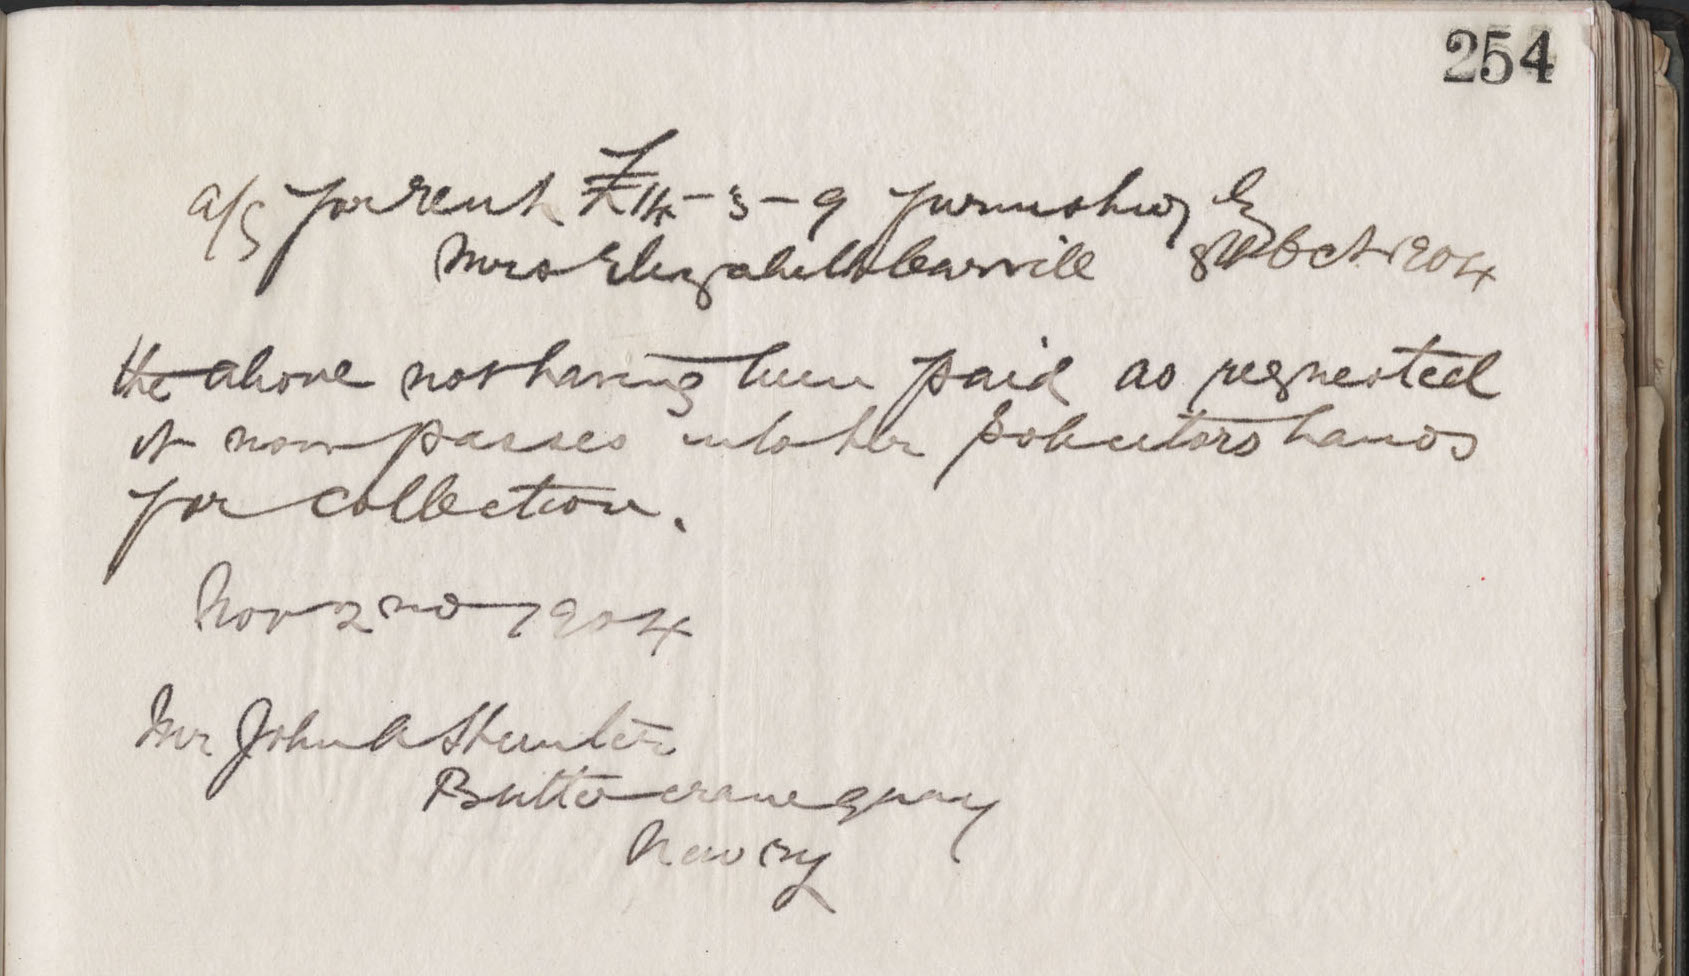 254
a/c for rent £14-3-9 furnished by
Mrs Elizabeth Carvill 8th Oct 1904
the above not having been paid as requested
it now passes into her Solicitors hands
for collection.
Nov 2nd 1904
Mr John A Hunter
Buttercrane quay
Newry